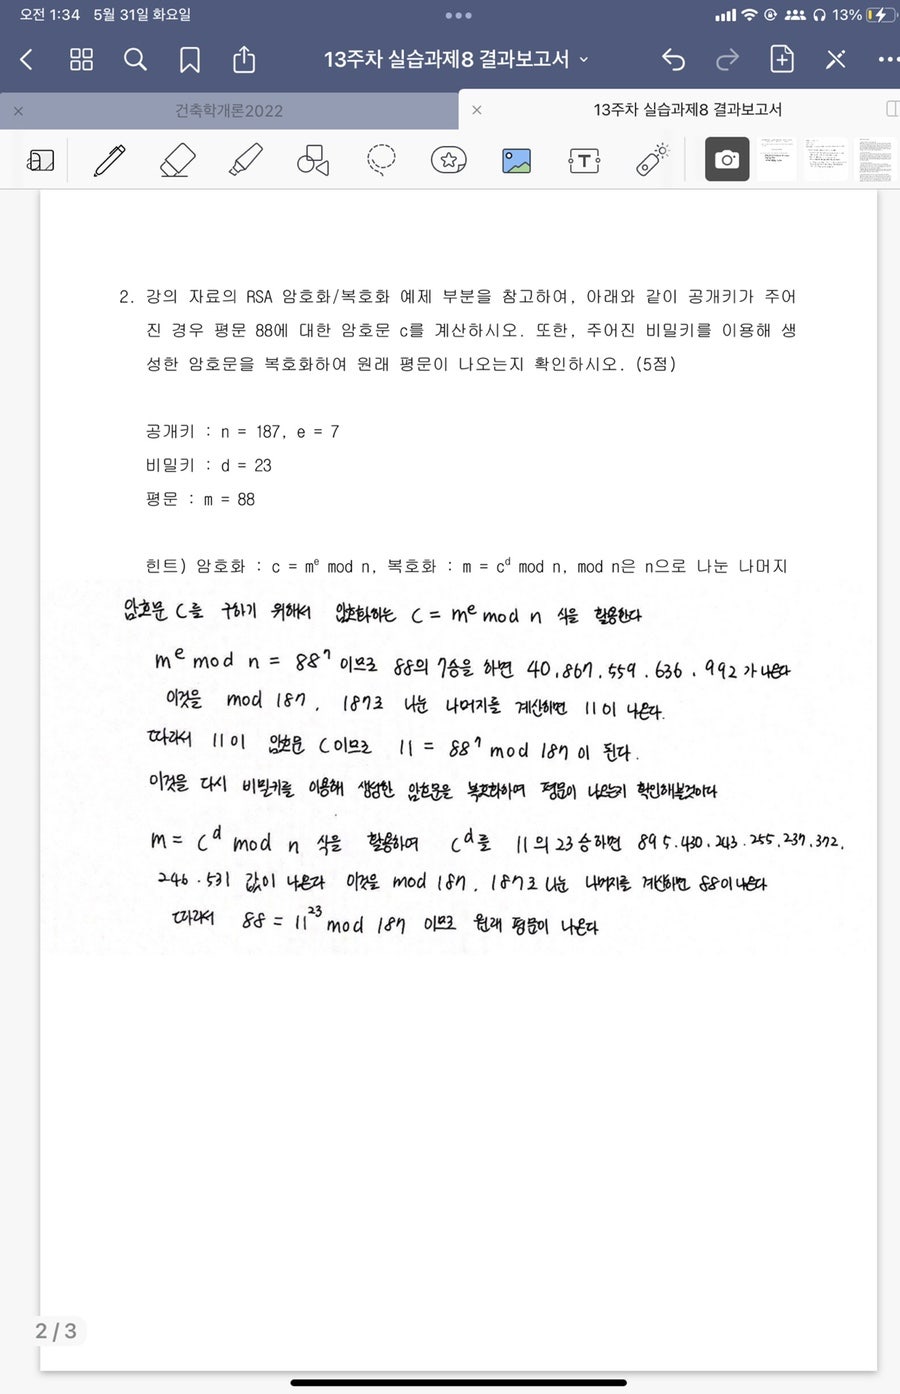 오전 1:34 5월 31일 화요일
13%
13주차 실습과제8 결과보고서
건축학개론2022
13주차 실습과제8 결과보고서
2. 강의 자료의 RSA 암호화/복호화 예제 부분을 참고하여, 아래와 같이 공개키가 주어
진 경우 평문 88에 대한 암호문 c를 계산하시오. 또한, 주어진 비밀키를 이용해 생
성한 암호문을 복호화하여 원래 평문이 나오는지 확인하시오. (5점)
공개키 : n = 187, e = 7
비밀키 : d = 23
평문 : m = 88
힌트) 암호화 : c = mᵉ mod n, 복호화 : m = cᵈ mod n, mod n은 n으로 나눈 나머지
암호문 C를 구하기 위해서 암호화하는 C = mᵉ mod n 식을 활용한다
mᵉ mod n = 88⁷ 이므로 88의 7승을 하면 40.867.559.636.992가 나온다
이것을 mod 187, 187로 나눈 나머지를 계산하면 11이 나온다.
따라서 11이 암호문 C이므로 11 = 88⁷ mod 187이 된다.
이것을 다시 비밀키를 이용해 생성한 암호문을 복호화하여 평문이 나오는지 확인해볼것이다
m = Cᵈ mod n 식을 활용하여 Cᵈ를 11의 23승하면 895.430.243.255.237.372.
246.531 값이 나온다 이것을 mod 187, 187로 나눈 나머지를 계산하면 88이 나온다
따라서 88 = 11²³ mod 187 이므로 원래 평문이 나온다
2 / 3